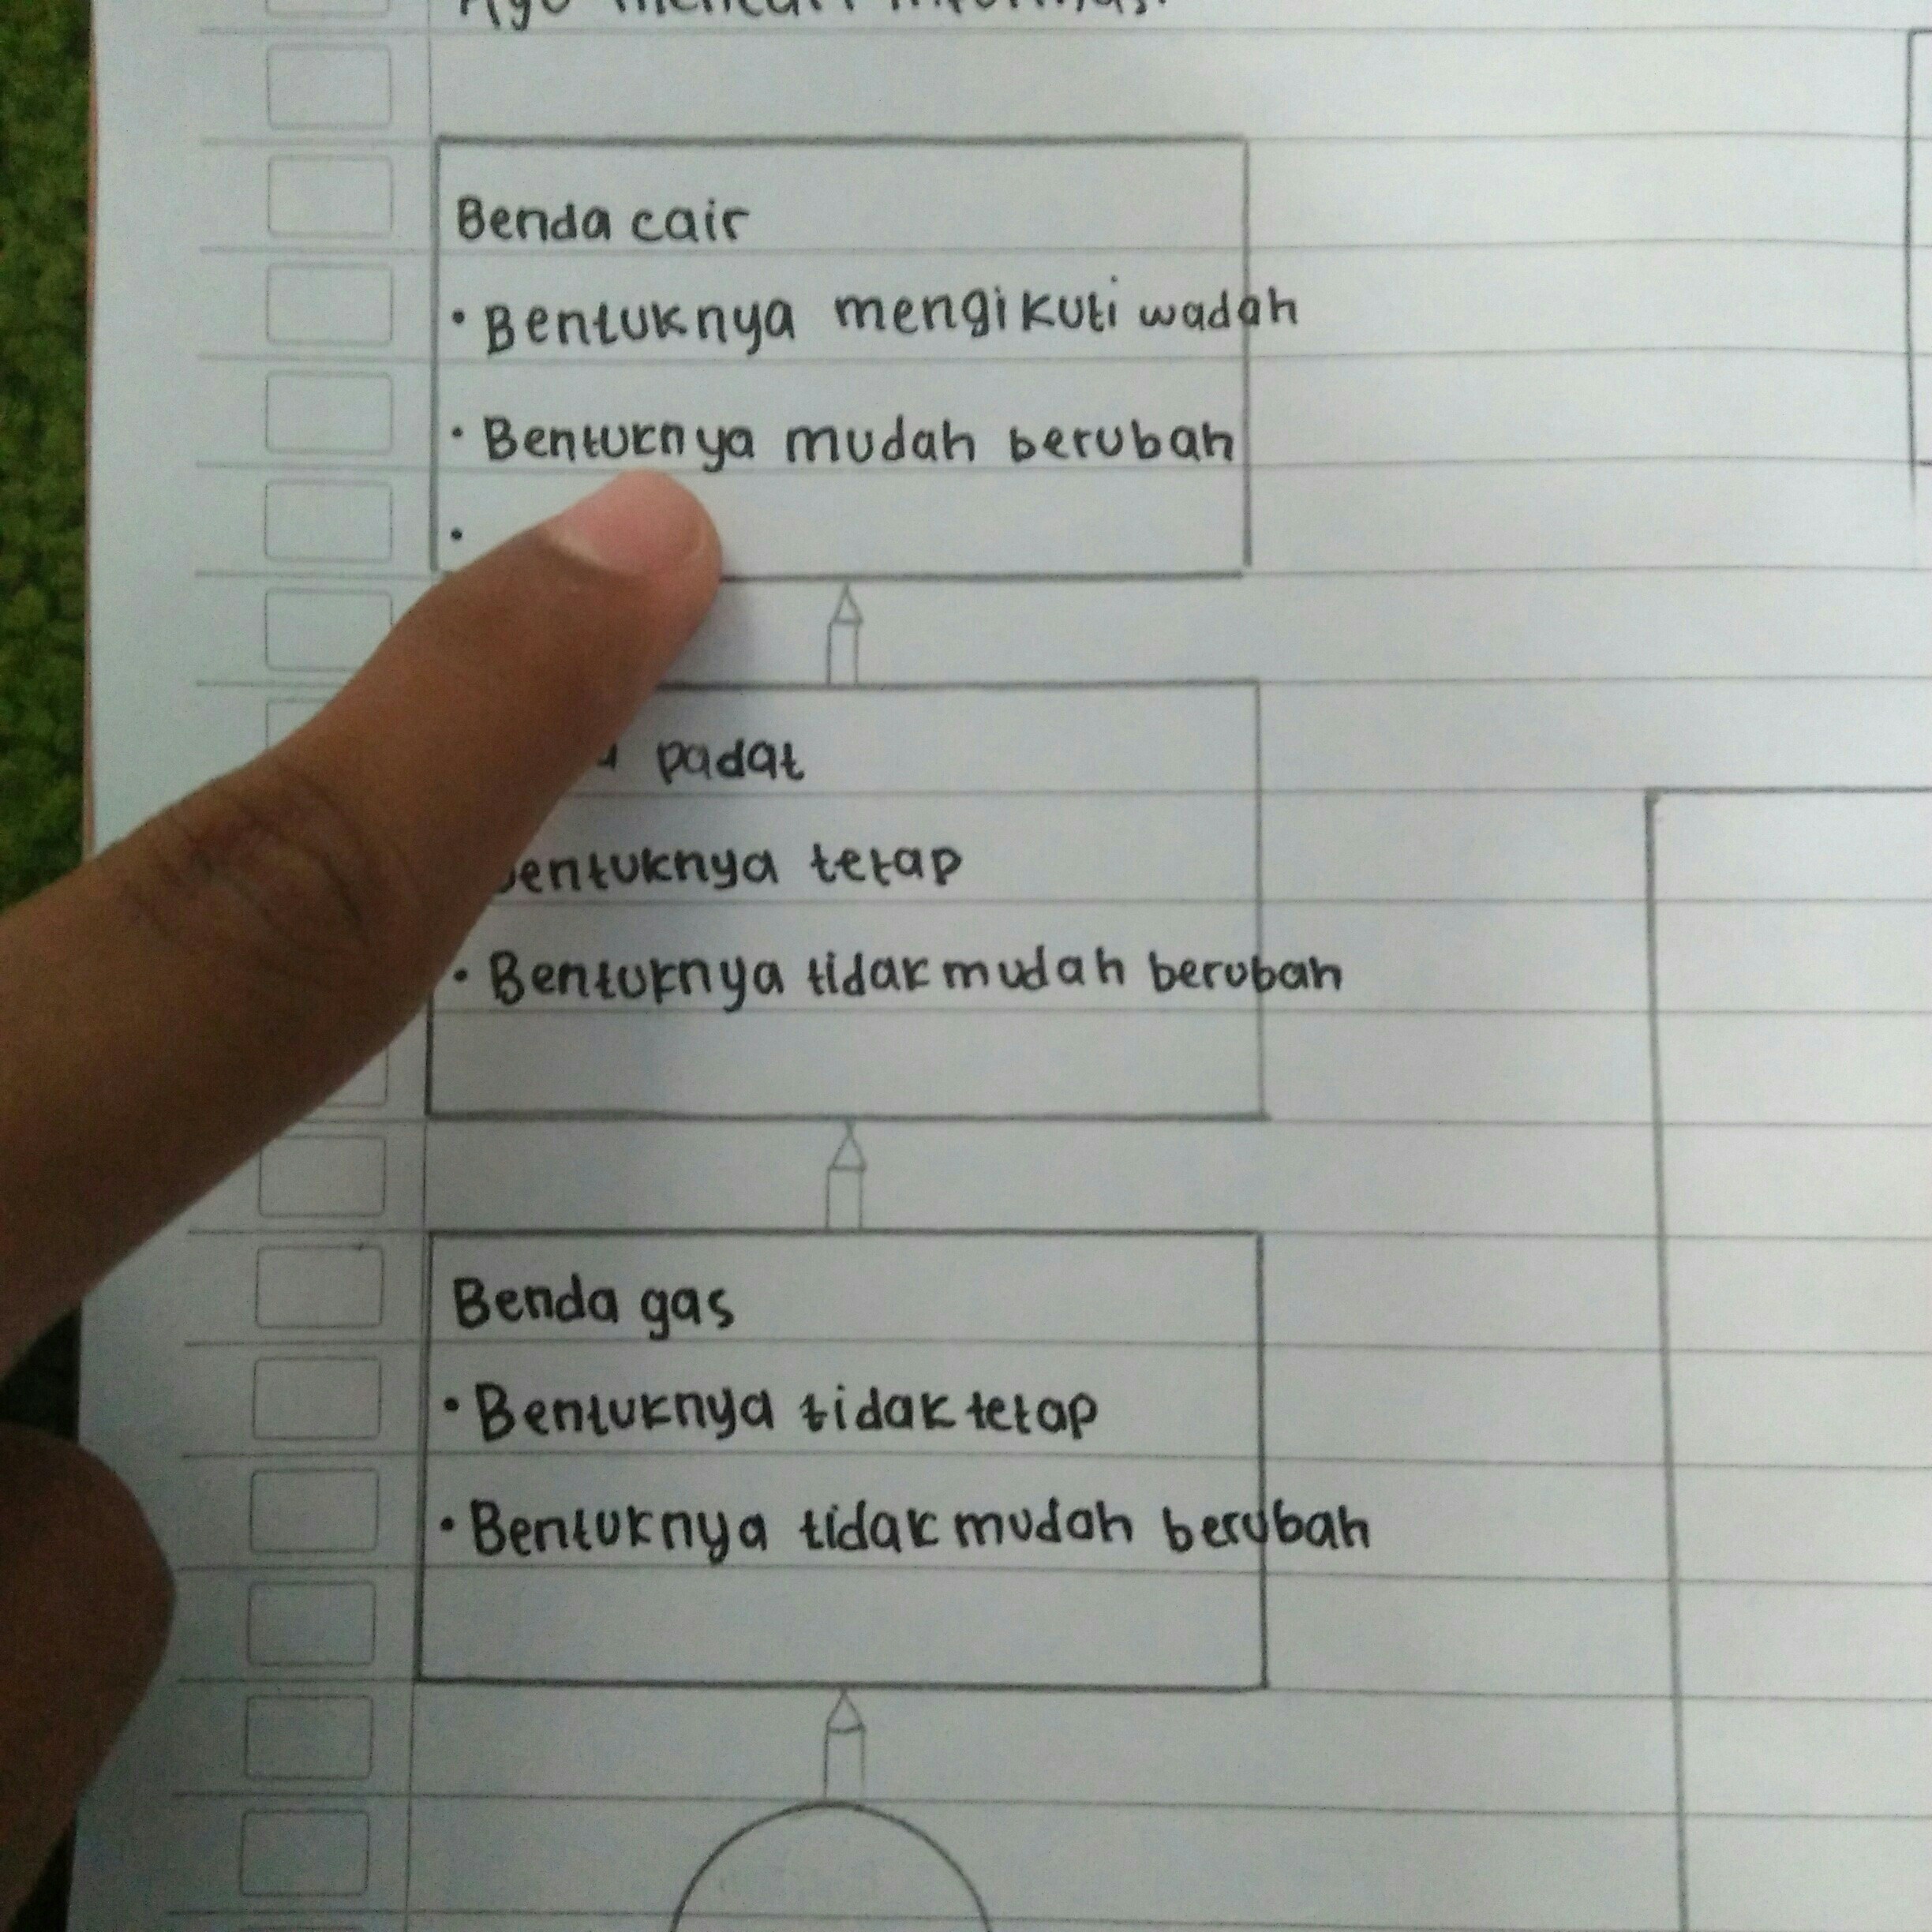 Ayo mencari informasi
Benda cair
• Bentuknya mengikuti wadah
• Bentuknya mudah berubah
•
padat
Bentuknya tetap
• Bentuknya tidak mudah berubah
Benda gas
• Bentuknya tidak tetap
• Bentuknya tidak mudah berubah